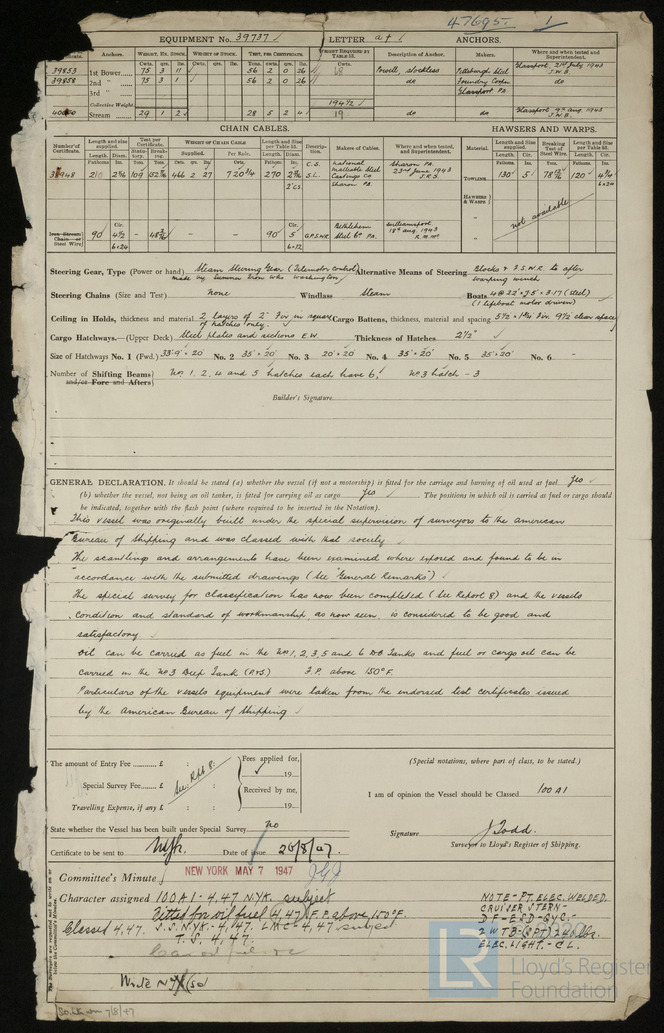 47695 1
EQUIPMENT No. 39737 LETTER a † ANCHORS.
Anchors. WEIGHT, EX. STOCK. WEIGHT OF STOCK. TEST, PER CERTIFICATE. WEIGHT REQUIRED BY TABLE 53. Description of Anchor. Makers. Where and when tested and Superintendent.
39853 1st Bower 75 3 11 56 2 0 26 Powell, stockless Pittsburgh Steel Glassport, 21st July 1943 J.W.B.
39858 2nd " 75 3 1 56 2 0 26 do Foundry Corpn do
3rd " Glassport Pa
Collective Weight 194½
Stream 29 1 2 28 5 2 4 19 do do Glassport 9th Aug. 1943 J.W.B.
CHAIN CABLES. HAWSERS AND WARPS.
Number of Certificate. Length and size supplied. Test per Certificate. WEIGHT OF CHAIN CABLE Length and Size per Table 53. Description. Makers of Cables. Where and when tested, and Superintendent. Material. Length and Size supplied. Breaking Test of Steel Wire. Length and Size per Table 53.
National Malleable Steel Castings Co Sharon Pa. Sharon Pa. 23rd June 1943 J.R.S.
TOWLINE 130 5 120
HAWSERS & WARPS not available
Iron Stream Chain or Steel Wire 90 4½ 6×24 90 5 6×12 G.F.S.W.R. Bethlehem Steel Co Pa. Williamsport 18th Aug. 1943
Steering Gear, Type (Power or hand) Steam Steering Gear (Telemotor control) Alternative Means of Steering Blocks & F.S.W.R. to after warping winch
Steering Chains (Size and Test) None Windlass Steam Boats 4 @ 22' × 7.5' × 3.17 (Steel) (1 lifeboat motor driven)
Ceiling in Holds, thickness and material 2 layers of 2" Fir in square of hatches only. Cargo Battens, thickness, material and spacing 5½ × 1¾ Fir. 9½ clear space
Cargo Hatchways.—(Upper Deck) Steel plates and sections E.W. Thickness of Hatches 2½"
Size of Hatchways No. 1 (Fwd.) 33'-9" × 20' No. 2 35' × 20' No. 3 20' × 20' No. 4 35' × 20' No. 5 35' × 20' No. 6 -
Number of Shifting Beams and/or Fore and Afters } Nos 1, 2, 4 and 5 hatches each have 6, No 3 hatch - 3
Builder's Signature
GENERAL DECLARATION. It should be stated (a) whether the vessel (if not a motorship) is fitted for the carriage and burning of oil used at fuel. Yes
(b) whether the vessel, not being an oil tanker, is fitted for carrying oil as cargo. Yes The positions in which oil is carried as fuel or cargo should
be indicated, together with the flash point (where required to be inserted in the Notation).
This vessel was originally built under the special supervision of surveyors to the American
Bureau of Shipping and was classed with that society
The scantlings and arrangements have been examined where exposed and found to be in
accordance with the submitted drawings (See "General Remarks")
The special survey for classification has now been completed (See Report 8) and the vessels
condition and standard of workmanship as now seen, is considered to be good and
satisfactory.
Oil can be carried as fuel in the Nos 1, 2, 3, 5 and 6 D.B. Tanks and fuel or cargo oil can be
carried in the No 3 Deep Tank (P.&S) F.P. above 150°F.
Particulars of the vessels equipment were taken from the endorsed test certificates issued
by the American Bureau of Shipping
The amount of Entry Fee £ : : Fees applied for, 19
Special Survey Fee £ See Rpt 8. Received by me, 19
Travelling Expense, if any £
(Special notations, where part of class, to be stated.)
I am of opinion the Vessel should be Classed 100 A1
State whether the Vessel has been built under Special Survey No
Signature J Todd.
Surveyor to Lloyd's Register of Shipping.
Certificate to be sent to Date of issue 28/8/47.
Committee's Minute NEW YORK MAY 7 1947
Character assigned 100A1 - 4,47 N.YK. subject
Fitted for oil fuel 4,47 F.P. above 150°F.
Classed 4,47. S.S. N.YK. - 4,47. LMC - 4,47 subject
T.S. 4,47.
NOTE - PT. ELEC. WELDED.
CRUISER STERN -
DF - ESD - GYC -
2 WTB - (SPT) 240 lbs.
ELEC. LIGHT. - CL.
Write N.Yk (so)
7/8/47
LR Lloyd's Register Foundation